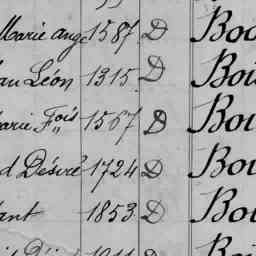 Marie ange 1587 D Boc
au Léon 1315 D Boi
arie Fois 1567 D Boi
d Désiré 1724 D Boi
ant 1853 D Boi